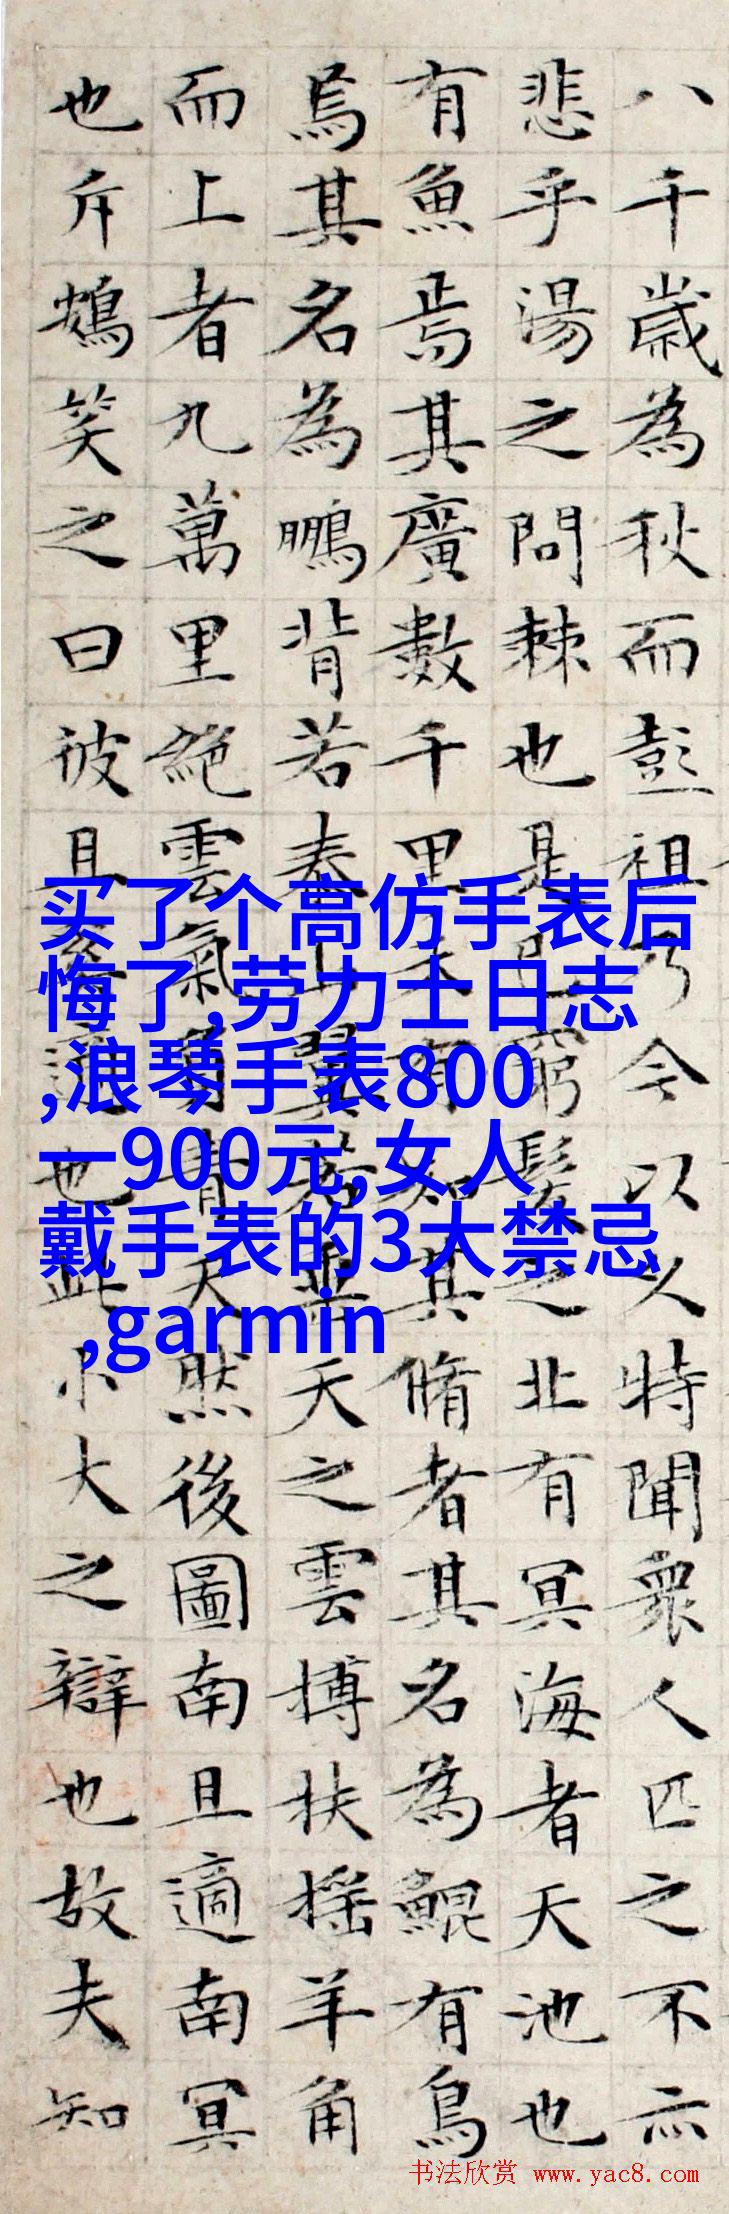 八千歲為秋而彭祖乃今以久特聞衆人匹之不亦
悲乎湯之問棘也是已窮髮之北有冥海者天池也
有魚焉其廣數千里未有知其脩者其名為鯤有鳥
焉其名為鵬背若泰山翼若垂天之雲搏扶搖羊角
而上者九萬里絕雲氣負青天然後圖南且適南冥
也斥鴳笑之曰彼且奚適也此小大之辯也故夫知
买了个高仿手表后
悔了,劳力士日志
,浪琴手表800
一900元,女人
戴手表的3大禁忌
,garmin
书法欣赏 www.yac8.com